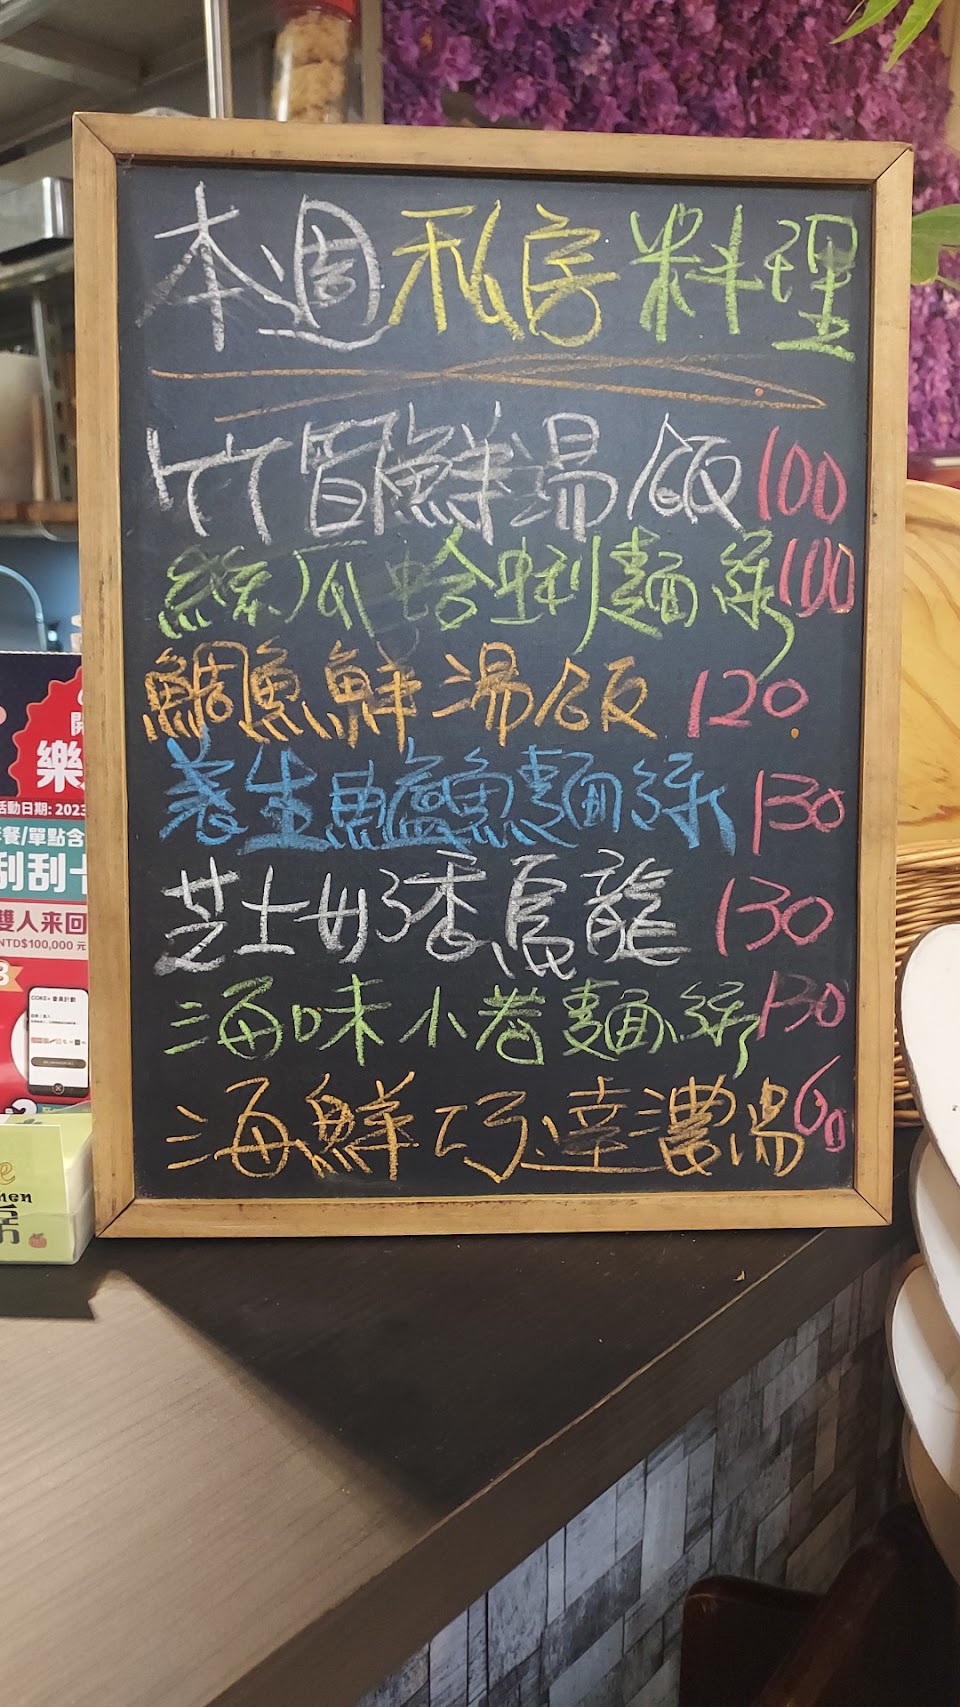 本週私房料理
竹筍鮮湯飯100
絲瓜蛤蜊麵線100
鯛魚鮮湯飯120
養生鱸魚麵線130
芝士奶香烏龍130
海味小卷麵線130
海鮮巧達濃湯60
樂
活動日期: 2023
套餐/單點含
刮刮卡
雙人來回
NTD$100,000元
COKE+ 會員計劃
men
房